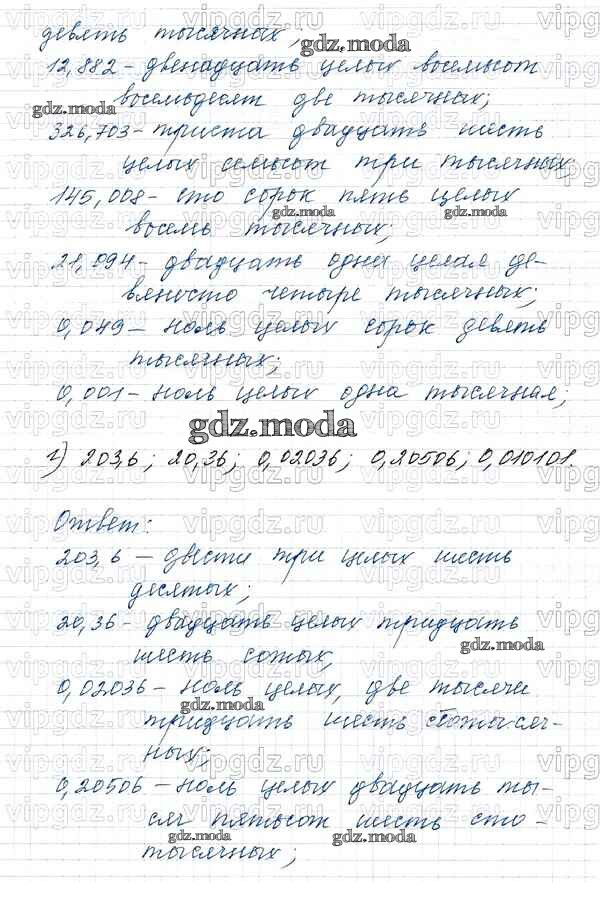 девять тысячных;
12,882 - двенадцать целых восемьсот
восемьдесят две тысячных;
326,703 - триста двадцать шесть
целых семьсот три тысячных;
145,008 - сто сорок пять целых
восемь тысячных;
21,094 - двадцать одна целая де-
вяносто четыре тысячных;
0,049 - ноль целых сорок девять
тысячных;
0,001 - ноль целых одна тысячная;
gdz.moda
г) 203,6; 20,36; 0,02036; 0,20506; 0,010101.
Ответ:
203,6 - двести три целых шесть
десятых;
20,36 - двадцать целых тридцать
шесть сотых;
0,02036 - ноль целых, две тысячи
тридцать шесть стотысяч-
ных;
0,20506 - ноль целых двадцать ты-
сяч пятьсот шесть сто-
тысячных;